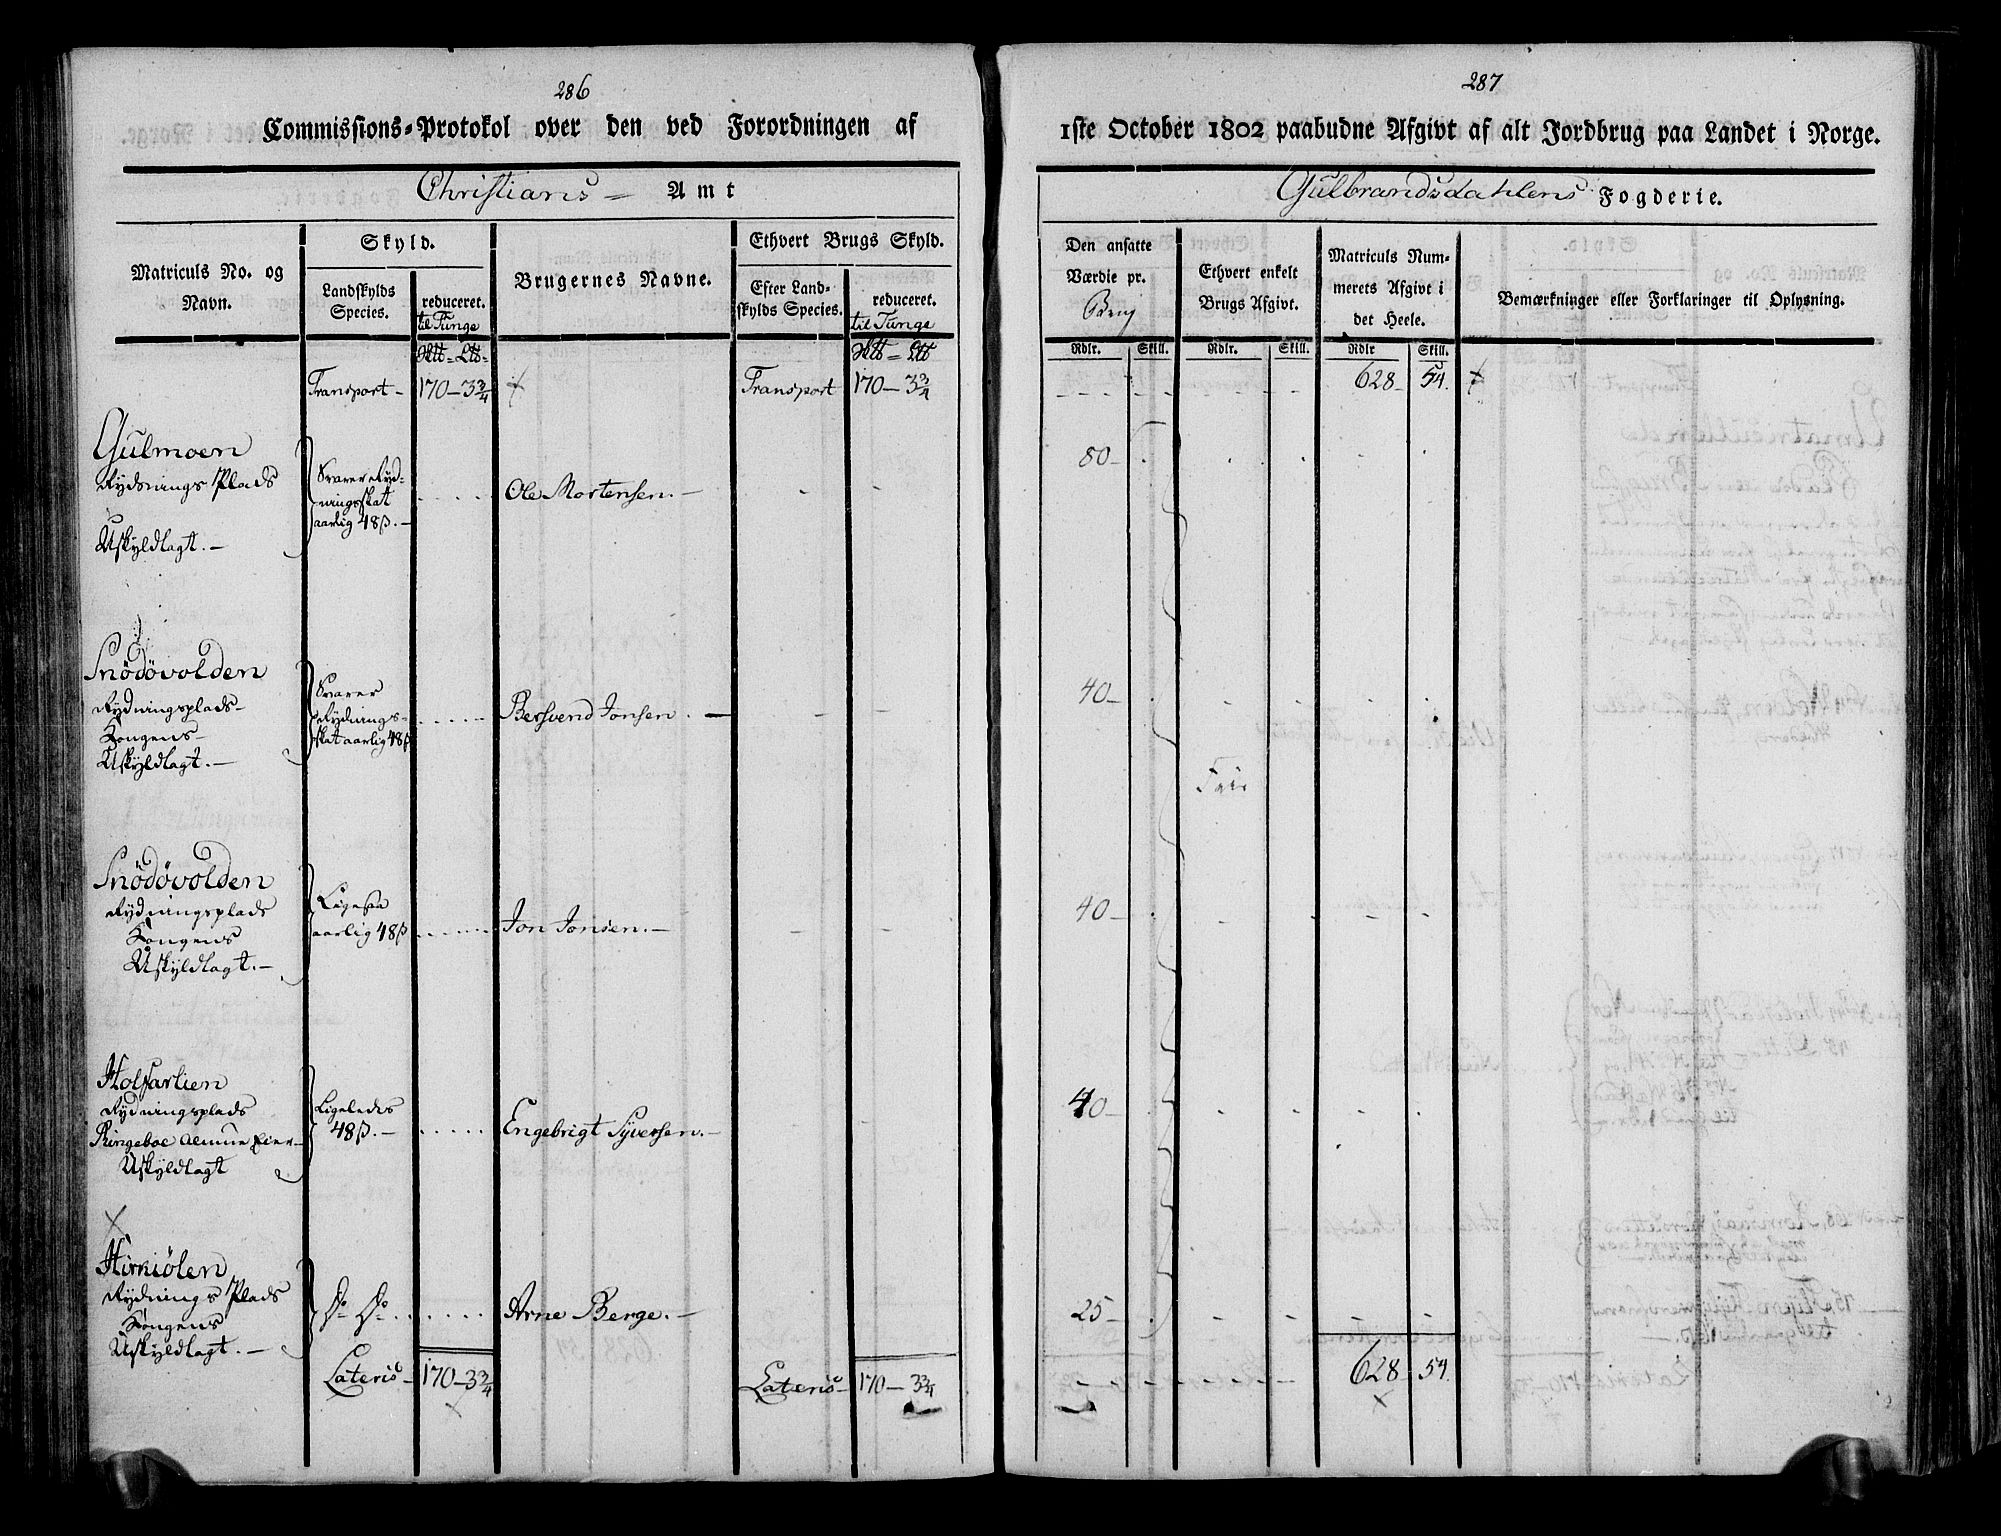 286
Commissions-Protokol over den ved Forordningen af
Christians - Amt
Matriculs No. og Navn.
Skyld.
Landskylds Species.
reduceret. til Tunge
Brugernes Navne.
Ethvert Brugs Skyld.
Efter Landskylds Species.
reduceret. til Tunge
Transport - 170 - 3 3/4 Transport 170 - 3 3/4
Gulmoen
Rydnings Plads
Uskyldlagt. -
Svarer Ryd-
ningsskat
aarlig 48 ß. -
Ole Mortensen. -
Snödövolden
Rydningsplads -
Kongens -
Uskyldlagt. -
Svarer
Rydnings-
skat aarlig 48 ß
Bersvend Jonsen. -
Snödövolden
Rydningsplads
Kongens
Uskyldlagt. -
Ligesaa
aarlig 48 ß
Jon Jonsen. -
Holsarlien
Rydningsplads
Ringeboe Almue eier -
Uskyldlagt
Ligeledes
48 ß. -
Engebrigt Syversen. -
Hirkiölen
Rydnings Plads
Kongens
Uskyldlagt. -
do do
Arne Berge. -
Lateris - 170 - 3 3/4 Lateris - 170 - 3 3/4
287
1ste October 1802 paabudne Afgivt af alt Jordbrug paa Landet i Norge.
Gulbrandsdahlens Fogderie.
Den ansatte Værdie pr. Brug
Ethvert enkelt Brugs Afgivt.
Matriculs Nummerets Afgivt i det Heele.
Bemærkninger eller Forklaringer til Oplysning.
Rdlr. Skill. Rdlr. Skill. Rdlr Skill.
628 - 54.
80 -
40 -
40 -
40 -
25 -
628 - 54.